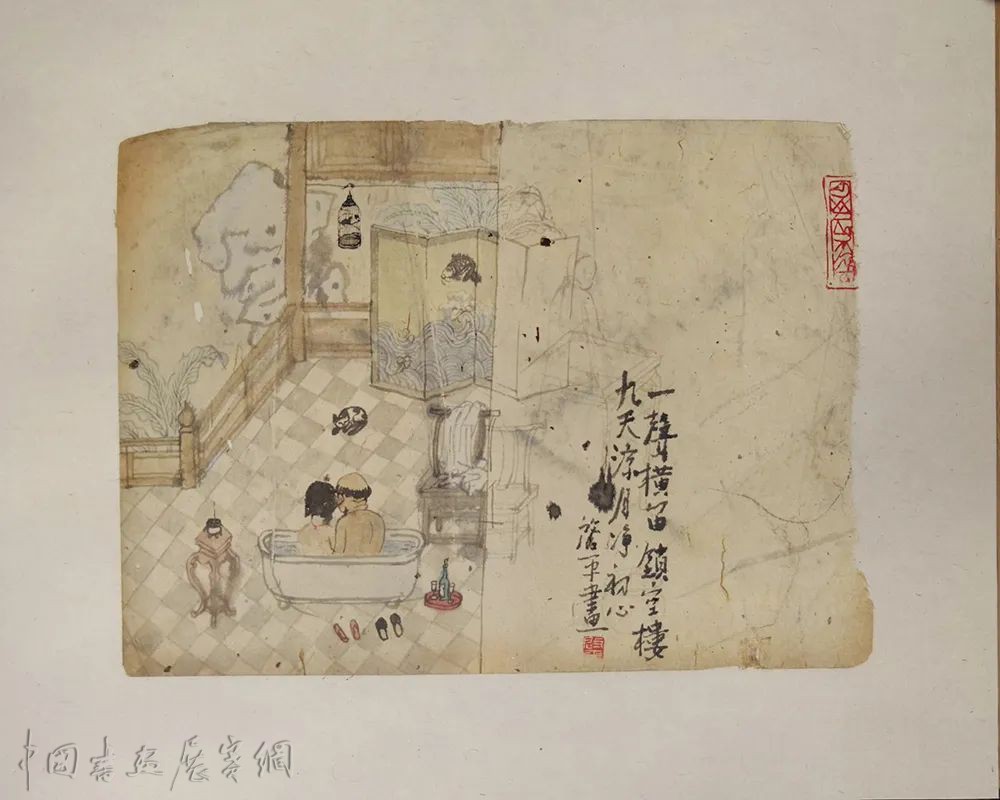 一聲橫笛鎖空樓
九天涼月淨初心
平畫
中國書畫展賽網